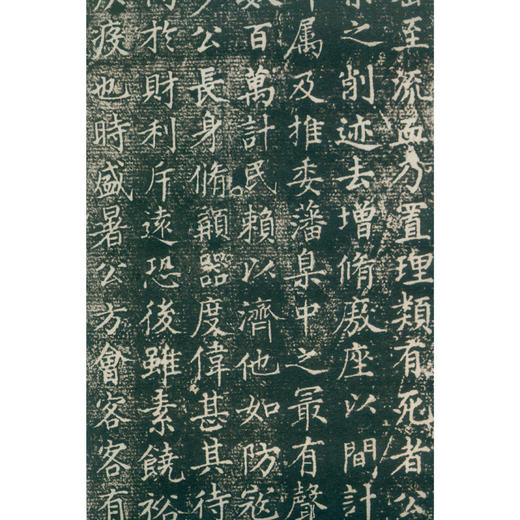 至流血乃置理類有死者公
之削迹去增脩廒座以間計
属及推委藩臬中之最有聲
百萬計民賴以濟他如防寇
公長身脩器度偉甚其待
於財利斥遠恐後雖素饒裕
也時盛暑公方會客客有